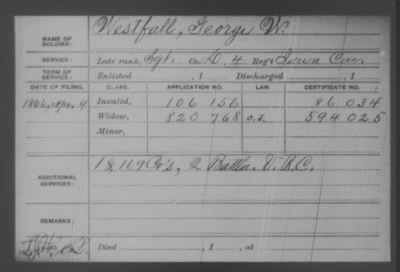 NAME OF SOLDIER: Westfall, George W.
SERVICE: Late rank, Sgt. Co. D, 4 Reg't Iowa Cav
TERM OF SERVICE: Enlisted , 1 Discharged , 1
DATE OF FILING. CLASS. APPLICATION NO. LAW. CERTIFICATE NO.
1866, Apr. 9 Invalid, 106 156 86 034
Widow, 820 768 O.L. 594 025
Minor,
ADDITIONAL SERVICES: 1 & 169 Co's, 2 Batln. V.R.C.
REMARKS:
Died , 1 , at